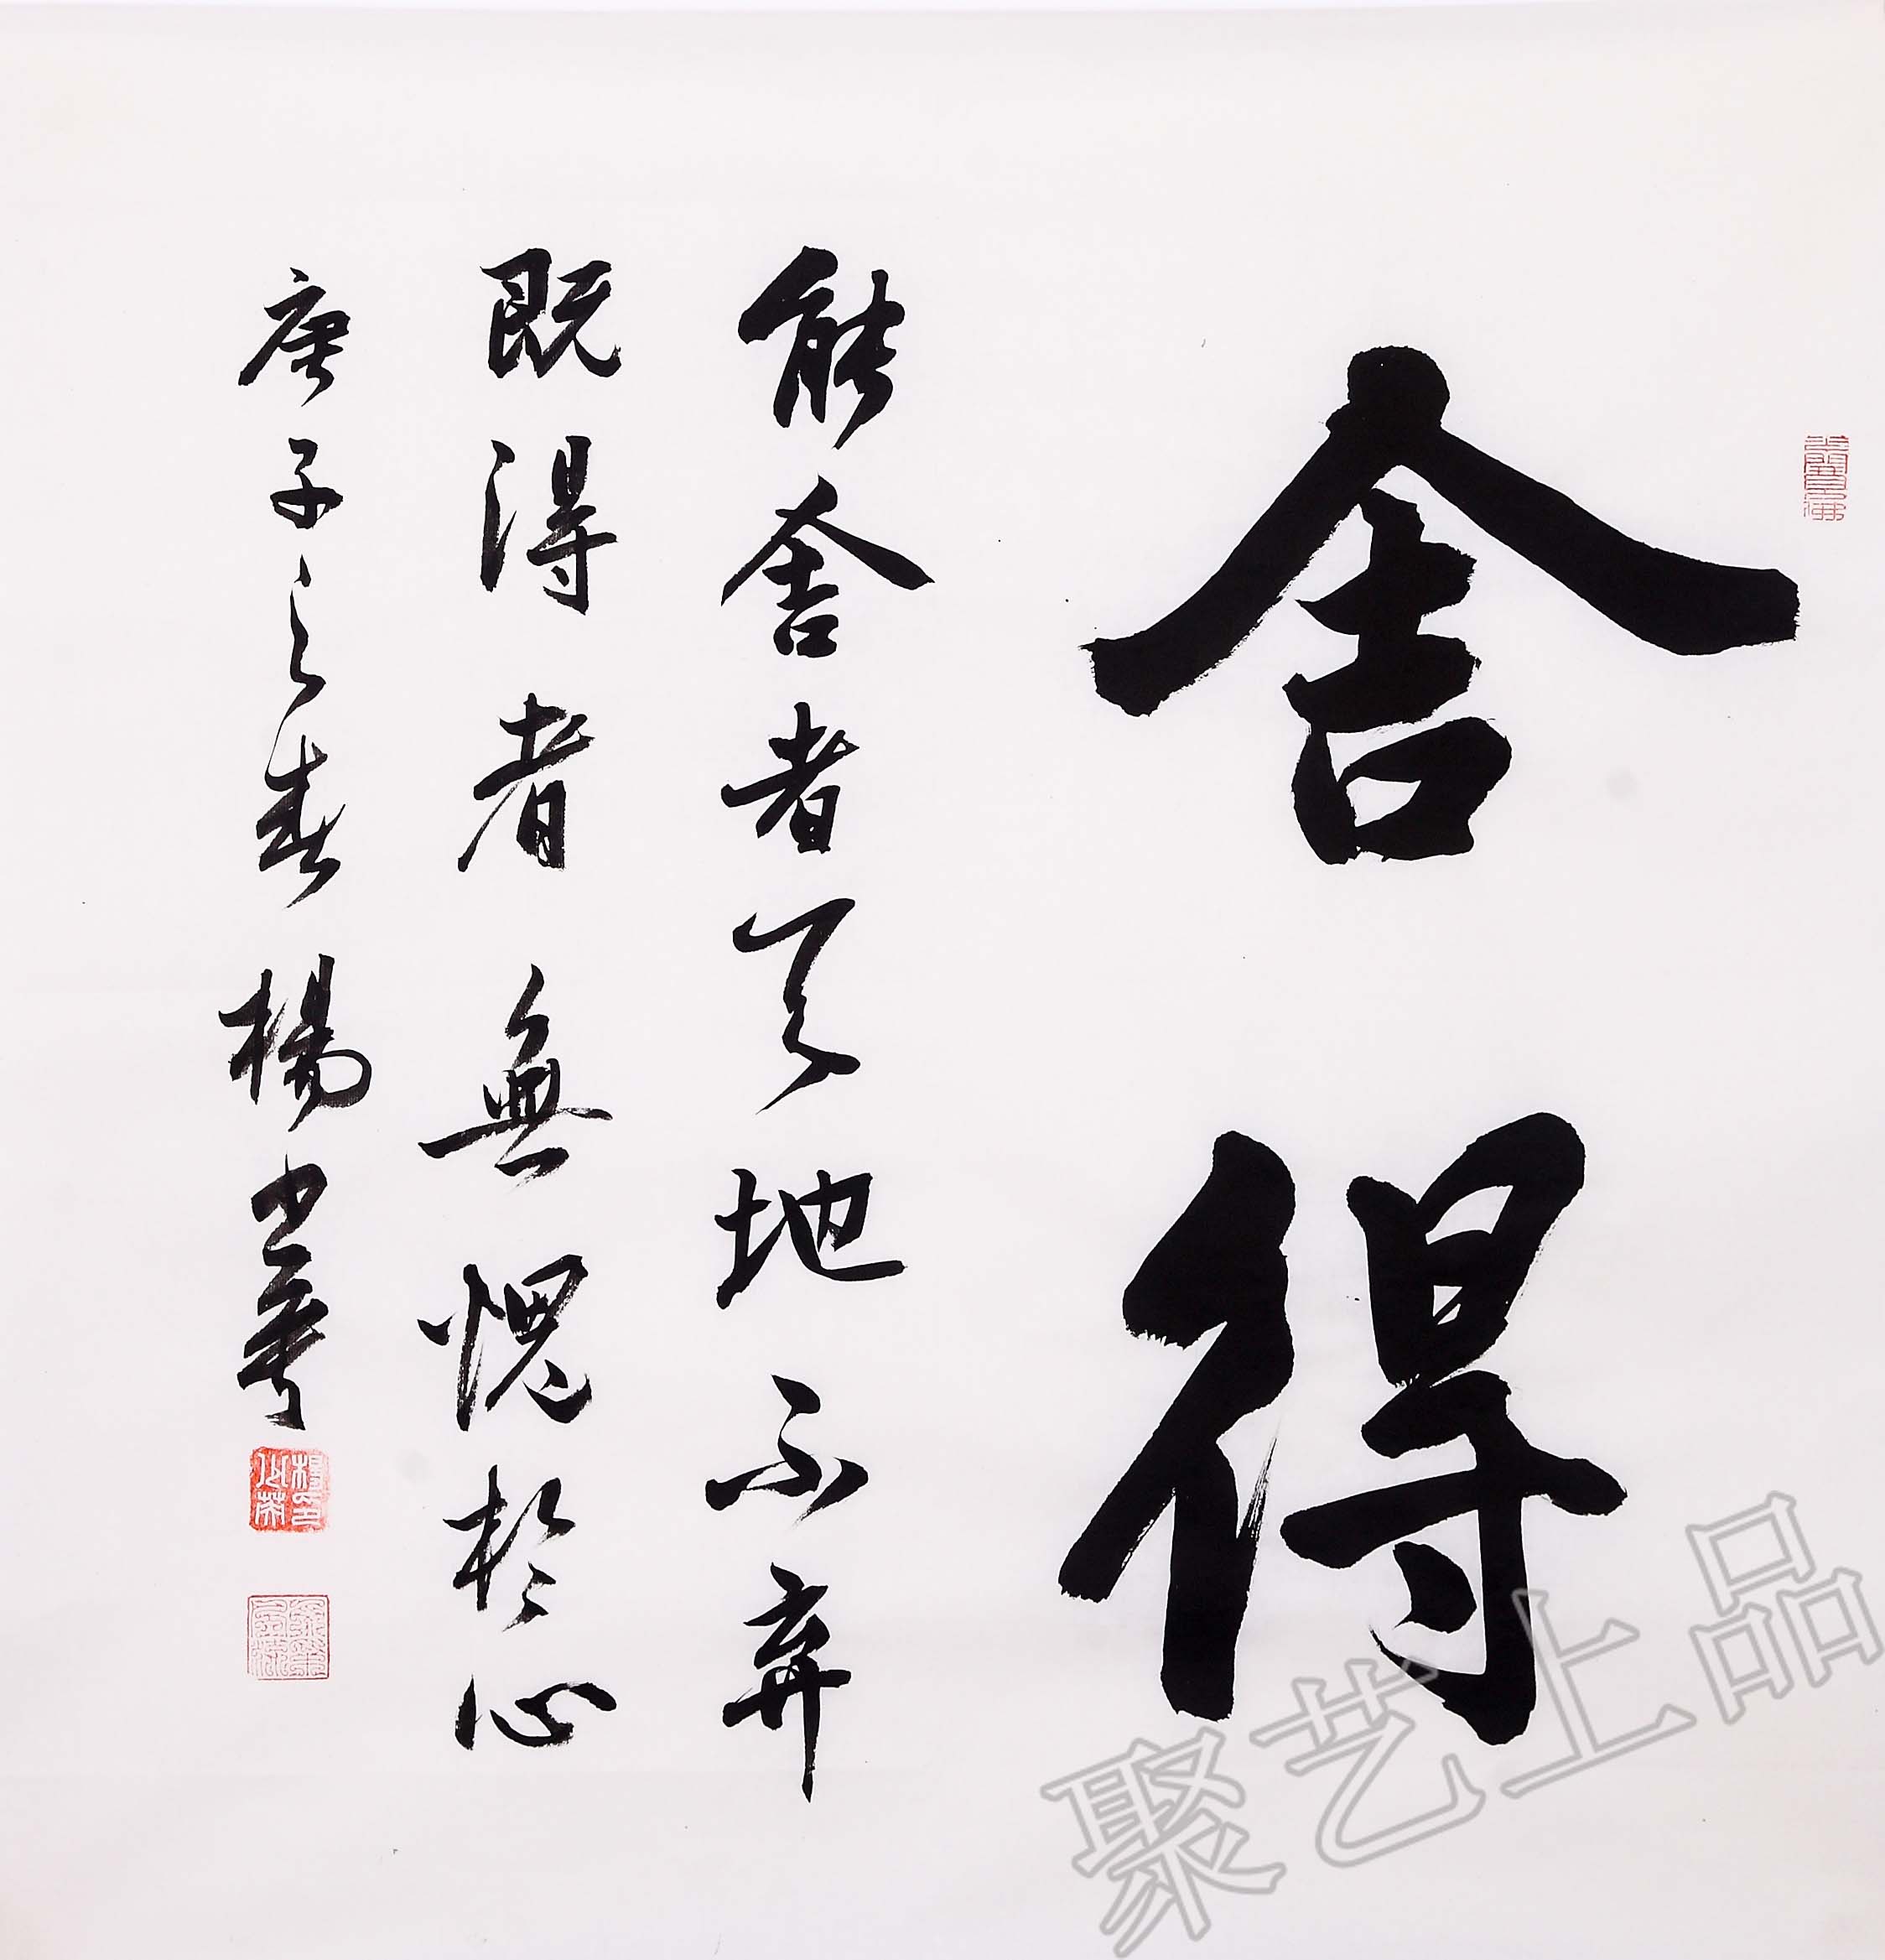 舍得
能舍者天地不弃
既得者無愧於心
庚子之春 楊少華
聚艺上品